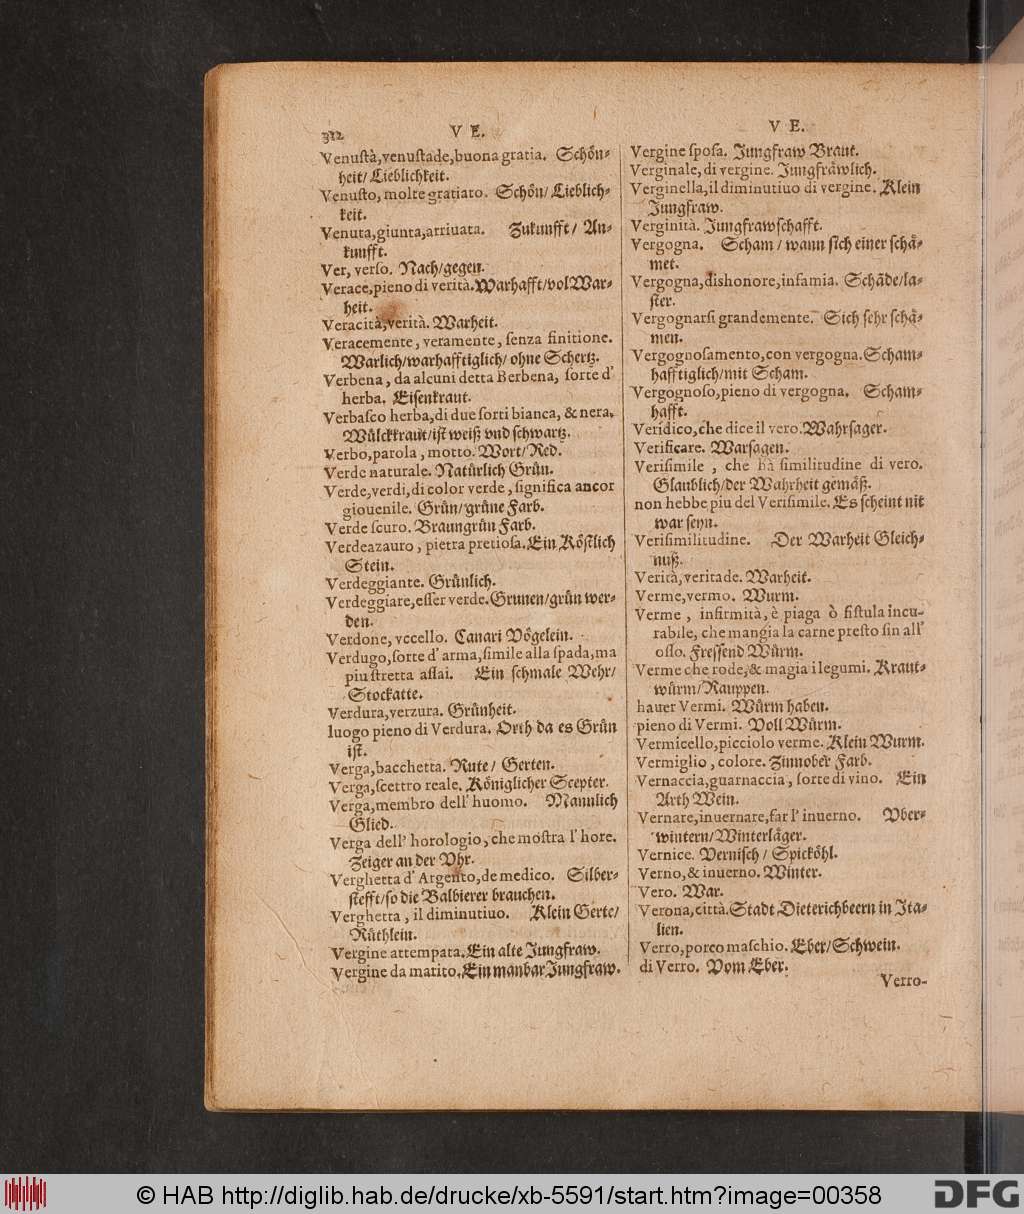 312
V E.
Venustà, venustade, buona gratia. Schön-
heit/ Lieblichkeit.
Venusto, molte gratiato. Schön/ Lieblich-
keit.
Venuta, giunta, arriuata. Zukunfft/ An-
kunfft.
Ver, verso. Nach/gegen.
Verace, pieno di verità. Warhafft/vol War-
heit.
Veracità, verità. Warheit.
Veracemente, veramente, senza finitione.
Warlich/warhafftiglich/ ohne Schertz.
Verbena, da alcuni detta Berbena, sorte d'
herba. Eisenkraut.
Verbasco herba, di due sorti bianca, & nera.
Wůlckkraut/ist weiß vnd schwartz.
Verbo, parola, motto. Wort/Red.
Verde naturale. Natürlich Grün.
Verde, verdi, di color verde, significa ancor
giouenile. Grün/grüne Farb.
Verde scuro. Braungrün Farb.
Verdeazauro, pietra pretiosa. Ein Köstlich
Stein.
Verdeggiante. Grünlich.
Verdeggiare, esser verde. Grunen/grün wer-
den.
Verdone, vccello. Canari Vögelein.
Verdugo, sorte d' arma, simile alla spada, ma
piu stretta assai. Ein schmale Wehr/
Stockatte.
Verdura, verzura. Grünheit.
luogo pieno di Verdura. Orth da es Grün
ist.
Verga, bacchetta. Rute/ Gerten.
Verga, scettro reale. Königlicher Scepter.
Verga, membro dell' huomo. Mannlich
Glied.
Verga dell' horologio, che mostra l' hore.
Zeiger an der Vhr.
Verghetta d' Argento, de medico. Silber-
stefft/so die Balbierer brauchen.
Verghetta, il diminutiuo. Klein Gerte/
Rüthlein.
Vergine attempata. Ein alte Jungfraw.
Vergine da marito. Ein manbar Jungfraw.
V E.
Vergine sposa. Jungfraw Braut.
Verginale, di vergine. Jungfräwlich.
Verginella, il diminutiuo di vergine. Klein
Jungfraw.
Verginità. Jungfrawschafft.
Vergogna. Scham/ wann sich einer schä-
met.
Vergogna, dishonore, infamia. Schāde/la-
ster.
Vergognarsi grandemente. Sich sehr schä-
men.
Vergognosamento, con vergogna. Scham-
hafftiglich/mit Scham.
Vergognoso, pieno di vergogna. Scham-
hafft.
Veridico, che dice il vero. Wahrsager.
Verificare. Warsagen.
Verisimile, che hà similitudine di vero.
Glaublich/der Wahrheit gemäß.
non hebbe piu del Verisimile. Es scheint nit
war seyn.
Verisimilitudine. Der Warheit Gleich-
nuß.
Verità, veritade. Warheit.
Verme, vermo. Wurm.
Verme, infirmità, è piaga ò fistula incu-
rabile, che mangia la carne presto sin all'
osso. Fressend Würm.
Verme che rode, & magia i legumi. Kraut-
würm/Rauppen.
hauer Vermi. Würm haben.
pieno di Vermi. Voll Würm.
Vermicello, picciolo verme. Klein Wurm.
Vermiglio, colore. Zinnober Farb.
Vernaccia, guarnaccia, sorte di vino. Ein
Arth Wein.
Vernare, inuernare, far l' inuerno. Vber-
wintern/Winterläger.
Vernice. Vernisch/ Spicköhl.
Verno, & inuerno. Winter.
Vero. War.
Verona, città. Stadt Dieterichbeern in Ita-
lien.
Verro, porco maschio. Eber/Schwein.
di Verro. Vom Eber.
Verro-
© HAB http://diglib.hab.de/drucke/xb-5591/start.htm?image=00358
DFG